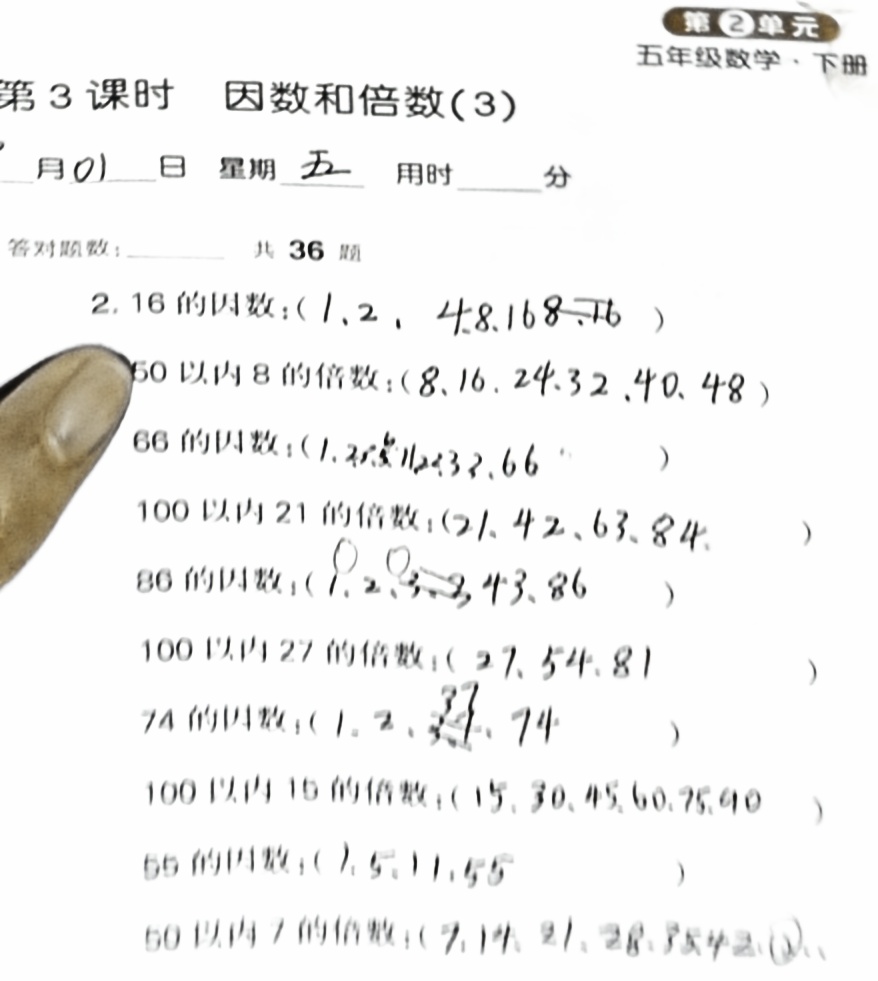 第2单元
五年级数学·下册
第3课时 因数和倍数(3)
月01日 星期五 用时 分
答对题数: 共36题
2. 16的因数:(1、2、4.8.16)
50以内8的倍数:(8、16.24.32、40、48)
66的因数:(1. 66)
100以内21的倍数:(21、42、63、84.)
86的因数:(1.2、43、86)
100以内27的倍数:(27、54、81)
74的因数:(1.2、37、74)
100以内15的倍数:(15、30、45、60.75.90)
55的因数:(1、5、11、55)
50以内7的倍数:(7、14、21、28、35 42